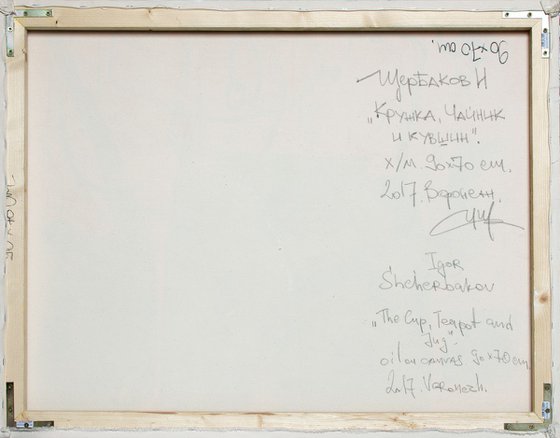 90x70 cm.
Щербаков И
„Кружка, Чайник
и кувшин".
х/м. 90x70 cm.
2017. Воронеж.
Igor
Shcherbakov
„The Cup, Teapot and
Jug".
oil on canvas 90x70 cm
2017. Voronezh.